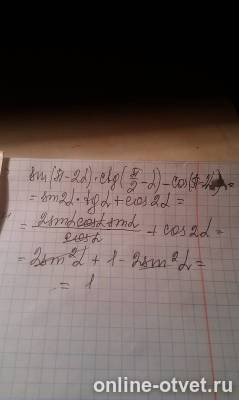 sin(π-2α)·ctg(π/2-α)-cos(π-2α)=
=sin2α·tgα+cos2α=
=2sinαcosαsinα/cosα+cos2α=
=2sin²α+1-2sin²α=
=1
online-otvet.ru